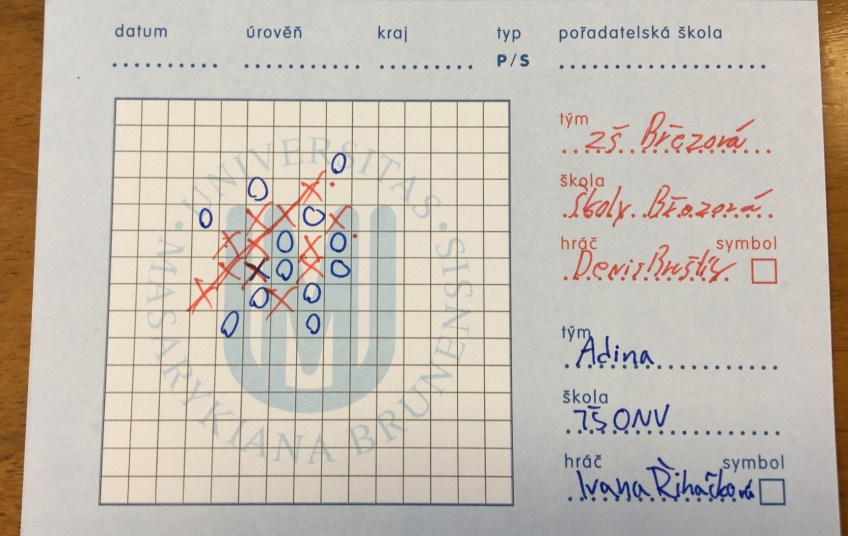 datum úroveň kraj typ pořadatelská škola
P/S
UNIVERSITAS · MASARYKIANA BRUNENSIS ·
tým
ZŠ Březová
škola
Školy Březová
hráč symbol
Denis
tým
Adina
škola
ZŠ ONV
hráč symbol
Ivana Řiháčková